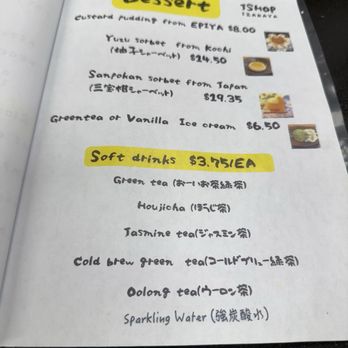 Dessert
TSHOP
IZAKAYA
Custard pudding from EPIYA $8.00
Yuzu sorbet from Kochi
(柚子シャーベット) $14.50
Sanpokan sorbet from Japan
(三宝柑シャーベット) $19.35
Greentea or Vanilla Ice cream $6.50
Soft drinks $3.75/EA
Green tea (おーいお茶緑茶)
Houjicha (ほうじ茶)
Jasmine tea(ジャスミン茶)
Cold brew green tea(コールドブリュー緑茶)
Oolong tea(ウーロン茶)
Sparkling Water (強炭酸水)